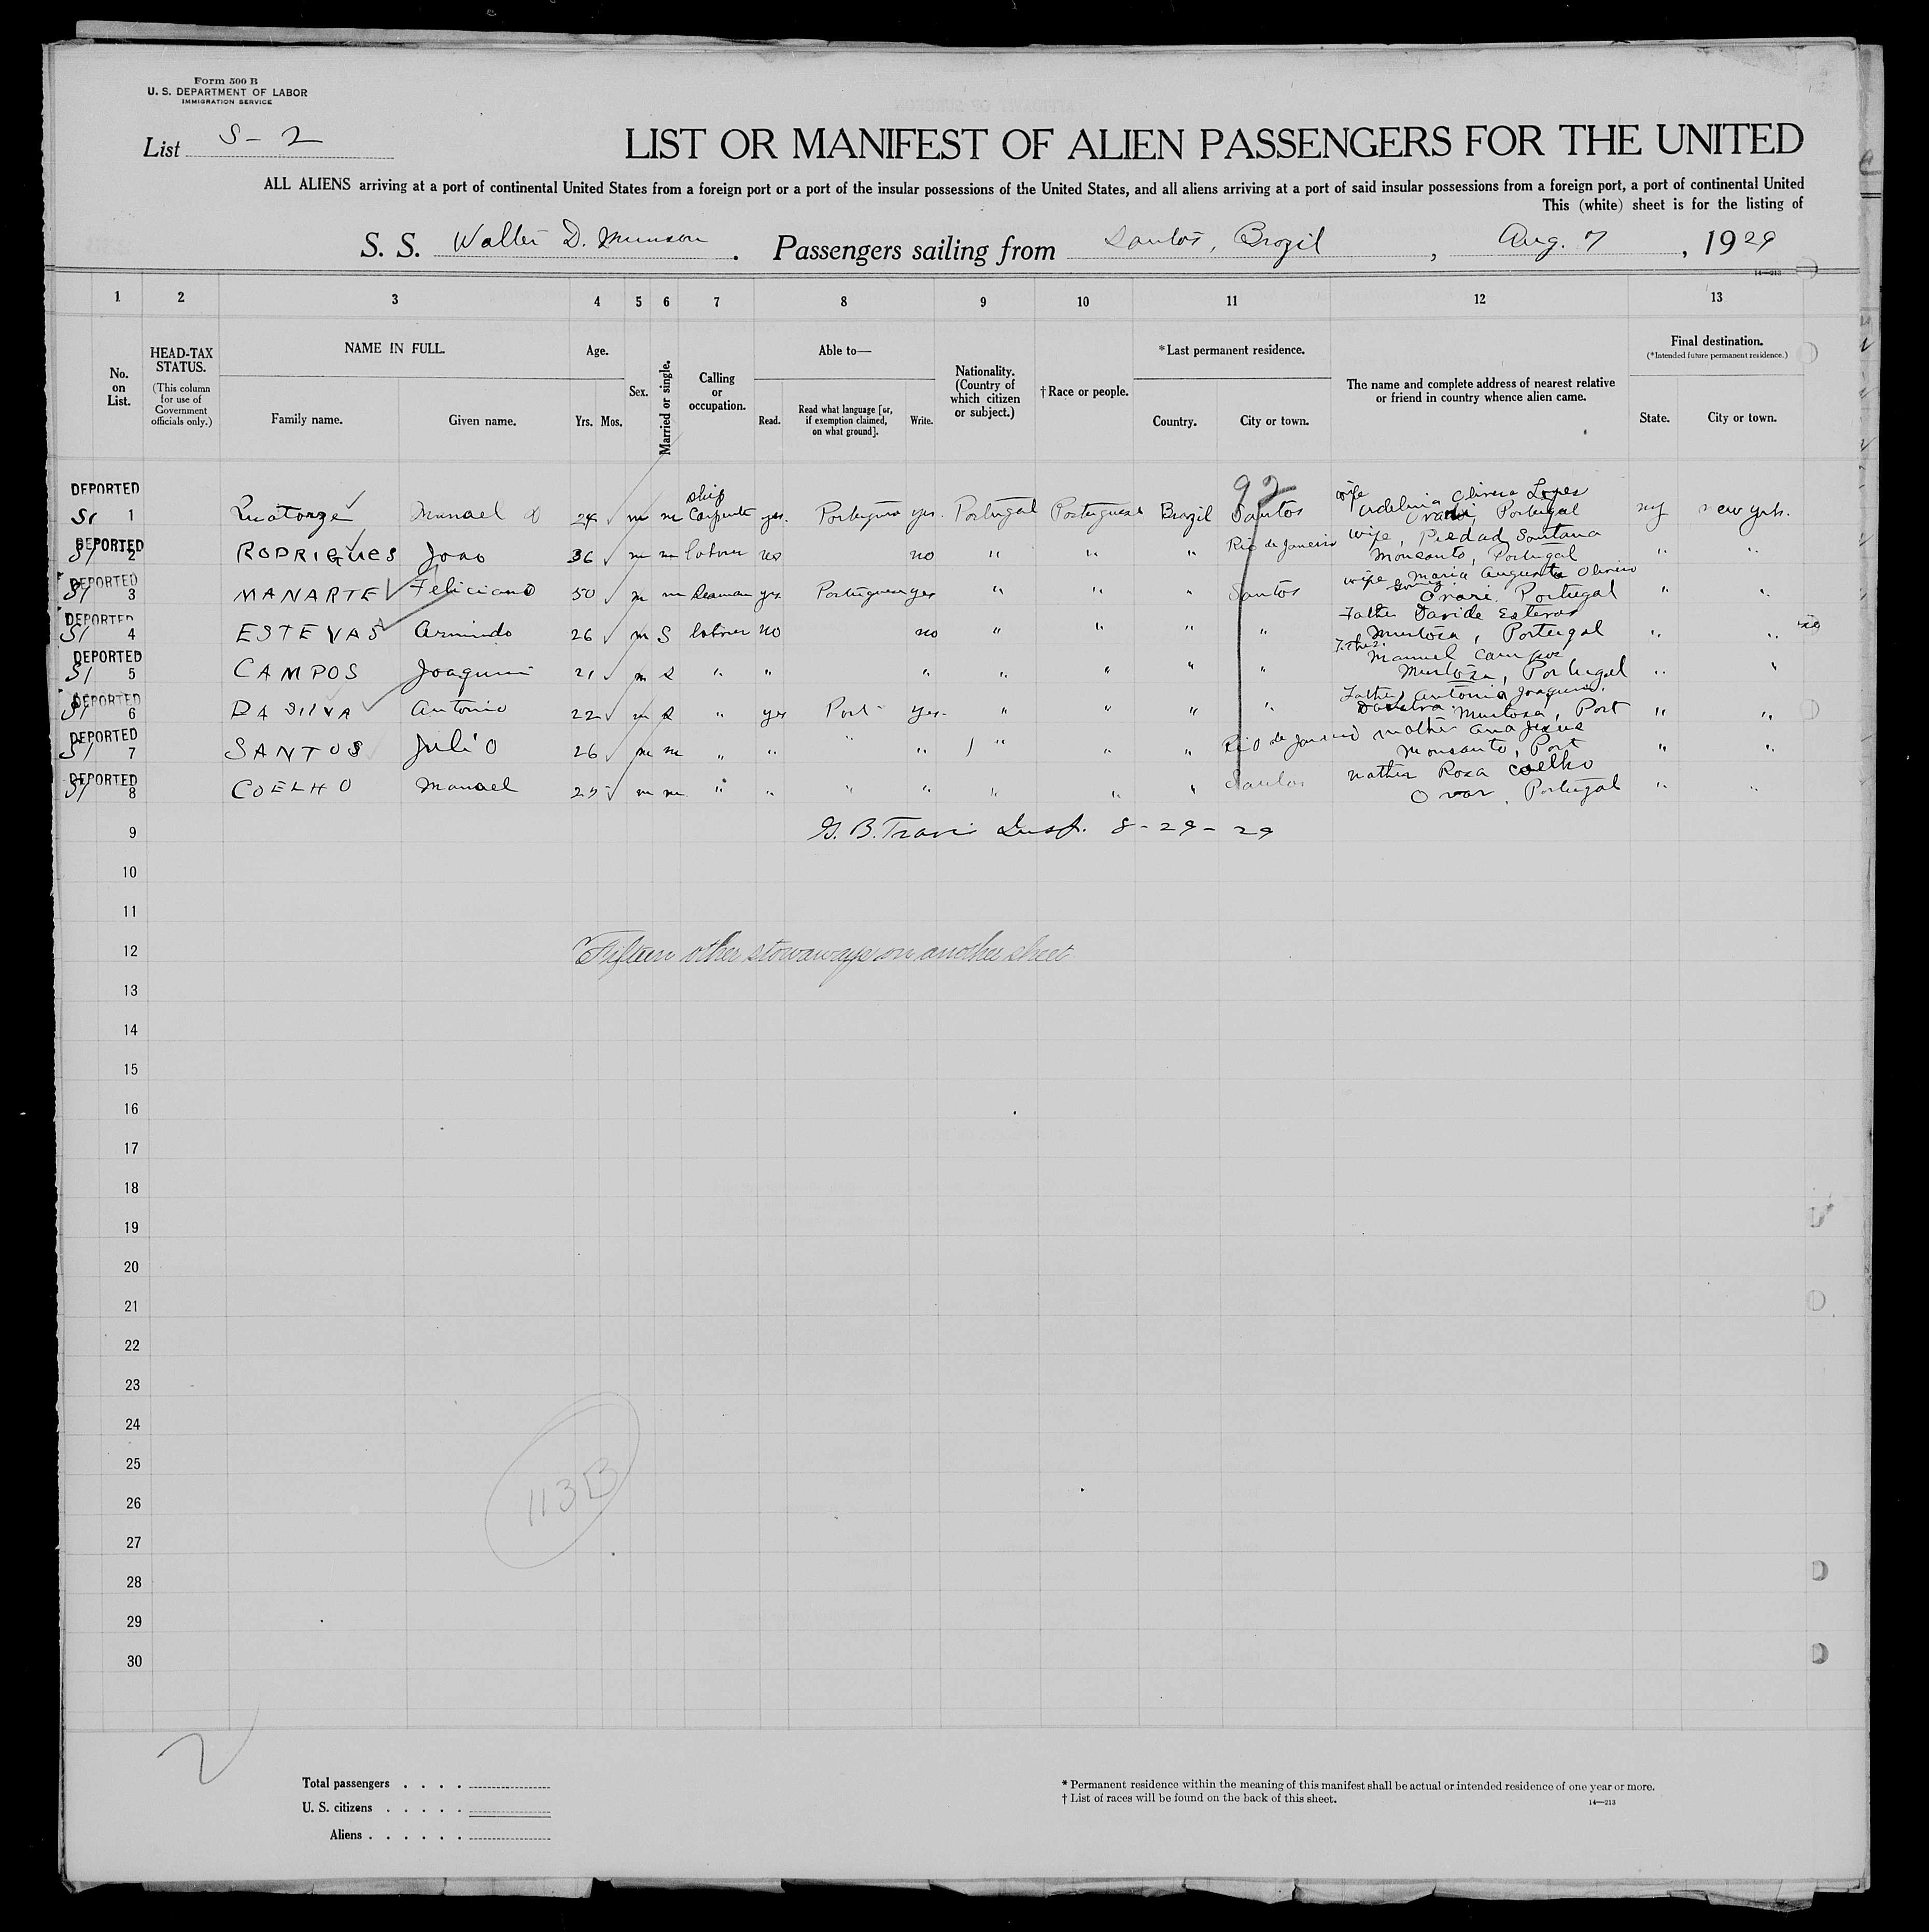 Form 500 B
U. S. DEPARTMENT OF LABOR
IMMIGRATION SERVICE
List S-2
LIST OR MANIFEST OF ALIEN PASSENGERS FOR THE UNITED
ALL ALIENS arriving at a port of continental United States from a foreign port or a port of the insular possessions of the United States, and all aliens arriving at a port of said insular possessions from a foreign port, a port of continental United
This (white) sheet is for the listing of
S. S. Walter D. Munson. Passengers sailing from Santos, Brazil, Aug. 7, 1929
14—213
1 2 3 4 5 6 7 8 9 10 11 12 13
No. on List.
HEAD-TAX STATUS.
(This column for use of Government officials only.)
NAME IN FULL.
Family name. Given name.
Age.
Yrs. Mos.
Sex.
Married or single.
Calling or occupation.
Able to—
Read.
Read what language [or, if exemption claimed, on what ground].
Write.
Nationality. (Country of which citizen or subject.)
† Race or people.
*Last permanent residence.
Country. City or town.
The name and complete address of nearest relative or friend in country whence alien came.
Final destination.
(*Intended future permanent residence.)
State. City or town.
92
DEPORTED
wife Oliveira Lopes
S1 1 Manuel 24 m m ship Carpenter yes. Portuguese yes. Portugal Portuguese Brazil Santos Portugal NY New York.
DEPORTED
S1 2 RODRIGUES Joao 36 m m laborer no no " " " Rio de Janeiro wife, Piedad Santana
Monsanto, Portugal " "
DEPORTED
S1 3 MANARTE Feliciano 50 m m Seaman yes Portuguese yes " " " Santos wife Maria Augusta Oliveira
Portugal " "
DEPORTED
S1 4 ESTEVAS Armindo 26 m S laborer no no " " " " Father Davide Estevas
Murtosa, Portugal " "
DEPORTED
S1 5 CAMPOS Joaquim 21 m S " " " " " " " Father Manuel Campos
Murtosa, Portugal " "
DEPORTED
S1 6 DA SILVA Antonio 22 m S " yes Port yes " " " " Father Antonio Joaquim
Murtosa, Port " "
DEPORTED
S1 7 SANTOS Julio 26 m m " " " " " " " Rio de Janeiro mother Ana Jesus
Monsanto, Port " "
DEPORTED
S1 8 COELHO Manuel m m " " " " " " " Santos mother Rosa Coelho
Ovar, Portugal " "
9 G. B. Travis Insp. 8-29-29
10
11
12 Fifteen other stowaways on another sheet
13
14
15
16
17
18
19
20
21
22
23
24
25
113B
26
27
28
29
30
2
Total passengers . . . .
U. S. citizens . . . . .
Aliens . . . . . .
* Permanent residence within the meaning of this manifest shall be actual or intended residence of one year or more.
† List of races will be found on the back of this sheet.
14—213